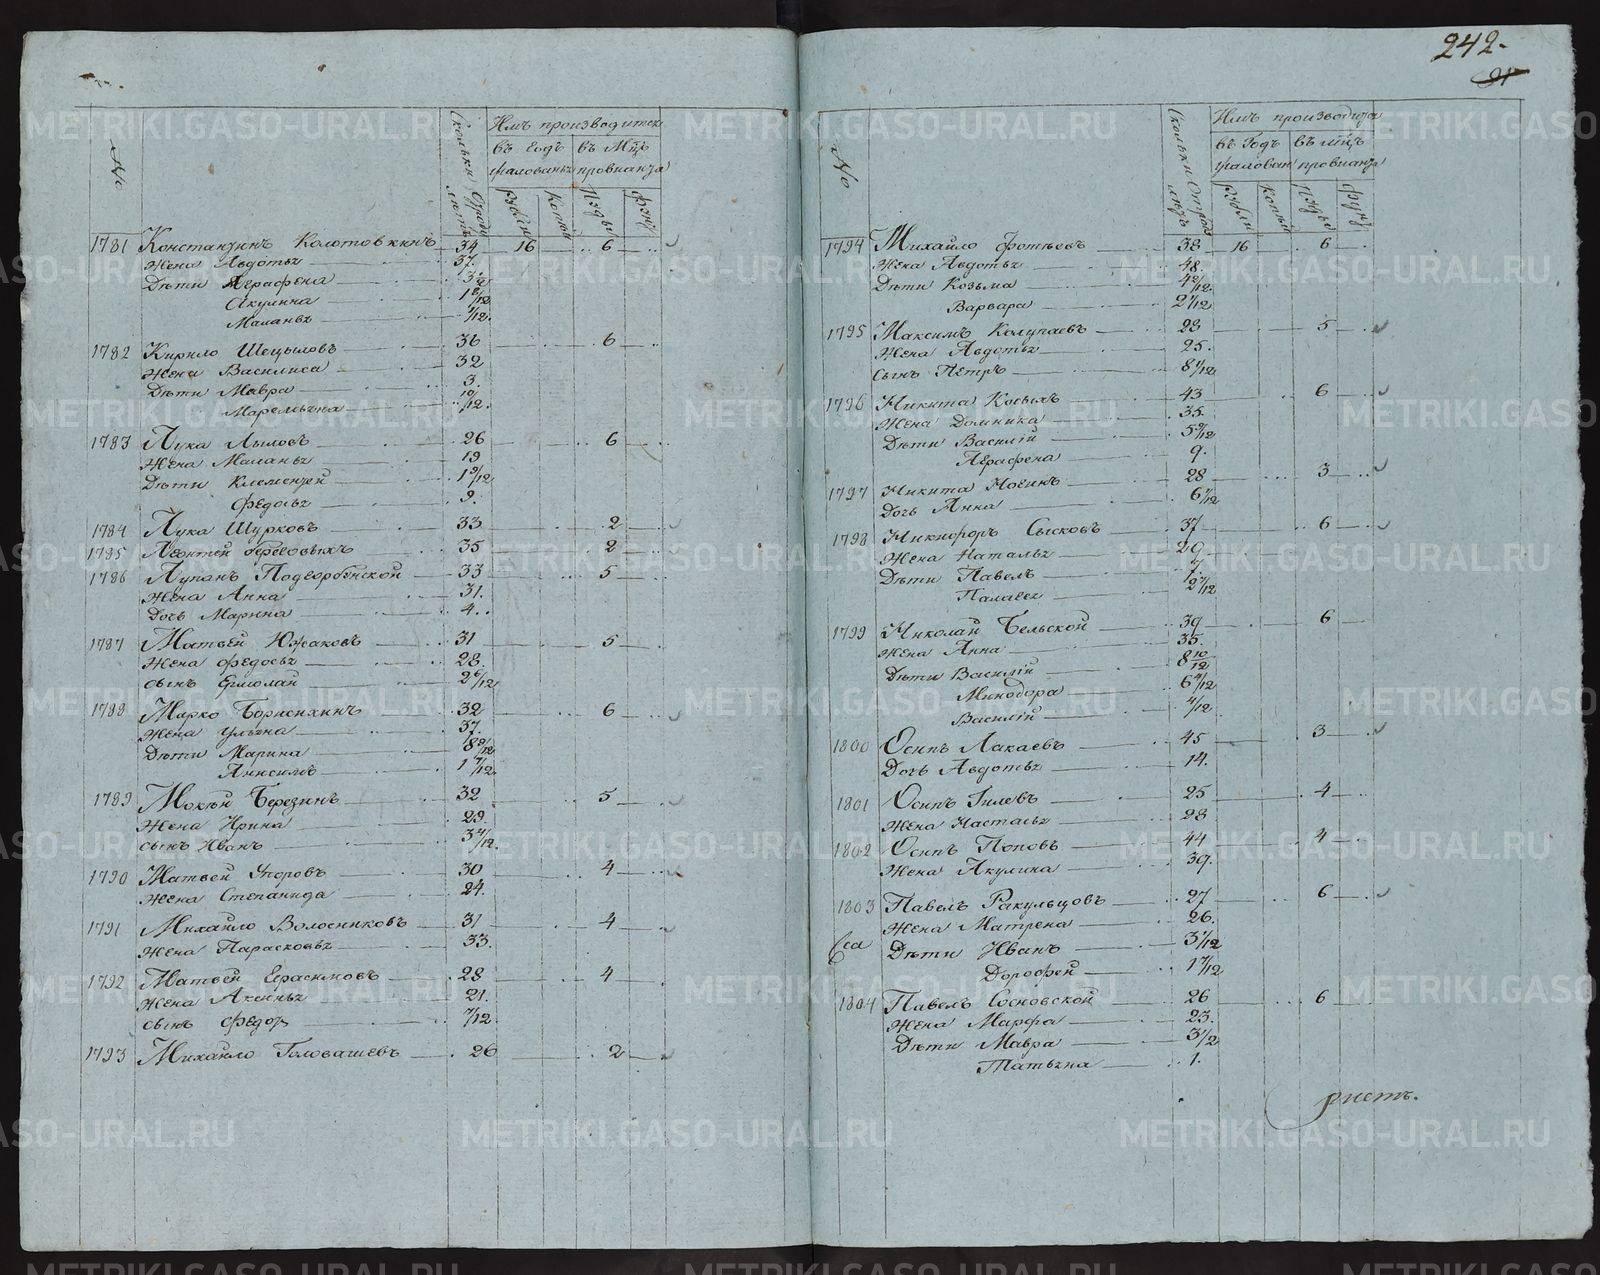 242.
91
№
Сколько отроду летъ
Имъ производится
въ годъ жалованья
въ М-цъ провианта
Рубли
Копей
Пуды
Фунт
1781 Константинъ Колотовкинъ 34 16 6
Жена Авдотья 37.
Дѣти Аграфена 3 1/2
Акулина 1 8/12
Маланья 1/12.
1782 Кирило Шецыловъ 36 6
Жена Василиса 32
Дѣти Мавра 3.
Маремьяна 10/12.
1783 Лука Лыловъ 26 6
Жена Маланья 19
Дѣти Клементей 1 9/12
Федосья 9.
1784 Лука Шурковъ 33 2
1785 Леонтей 35 2
1786 Лупанъ 33 5
Жена Анна 31.
Дочь Марина 4.
1787 Матвей Южаковъ 31 5
Жена Федосья 28.
сынъ Ермолай 2 6/12
1788 Марко Борисихинъ 32 6
Жена Ульяна 37.
Дѣти Марина 8 9/12
Анисимъ 1 7/12
1789 Мокѣй Березинъ 32 5
Жена Ирина 29.
сынъ Иванъ 3 4/12.
1790 Матвей Упоровъ 30 4
Жена Степанида 24.
1791 Михайло Волосниковъ 31 4
Жена Парасковья 33.
1792 Матвей Ерасимовъ 28 4
Жена Аксинья 21.
сынъ Федоръ 7/12.
1793 Михайло Головашевъ 26 2
№
Сколько отроду летъ
Имъ производится
въ Годъ жалован
въ мцъ провианта
Рубли
Копей
Пуды
Фунт
1794 Михайло Фотѣевъ 38 16 6
Жена Авдотья 48.
Дѣти Козьма 4 2/12.
Варвара 2 1/12
1795 Максимъ Калупаевъ 28 5
Жена Авдотья 25.
Сынъ Петръ 8 1/12
1796 Никита Косыхъ 43 6
Жена Домника 35.
Дѣти Василiй 5 9/12
Аграфена 9.
1797 Никита Мосинъ 28 3
Дочь Анна 6 1/12
1798 Никифоръ Сысковъ 37 6
Жена Наталья 29.
Дѣти Павелъ 7.
Палагея 1 2/12
1799 Николай Бельской 39 6
Жена Анна 35.
Дѣти Василiй 8 10/12
Минодора 6 4/12
Василiй 4/12
1800 Осипъ Лакаевъ 45 3
Дочь Авдотья 14.
1801 Осипъ Гилевъ 25 4
Жена Настасья 28
1802 Осипъ Поповъ 44 4
Жена Акулина 39.
1803 Павелъ Ракульцовъ 27 6
Жена Матрена 26.
Дѣти Иванъ 3 1/12
Дорофей 1 7/12
1804 Павелъ Сосновской 26 6
Жена Марфа 23.
Дѣти Мавра 3 1/2
Татьяна 1.
METRIKI.GASO-URAL.RU